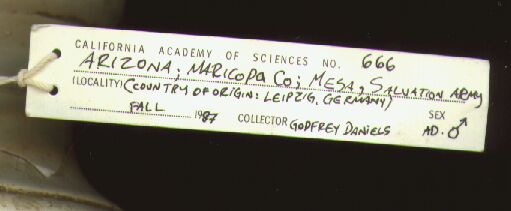 CALIFORNIA ACADEMY OF SCIENCES NO. 666
ARIZONA; MARICOPA CO; MESA, SALVATION ARMY
(LOCALITY) (COUNTRY OF ORIGIN: LEIPZIG, GERMANY)
FALL 1987 COLLECTOR GODFREY DANIELS SEX AD. ♂